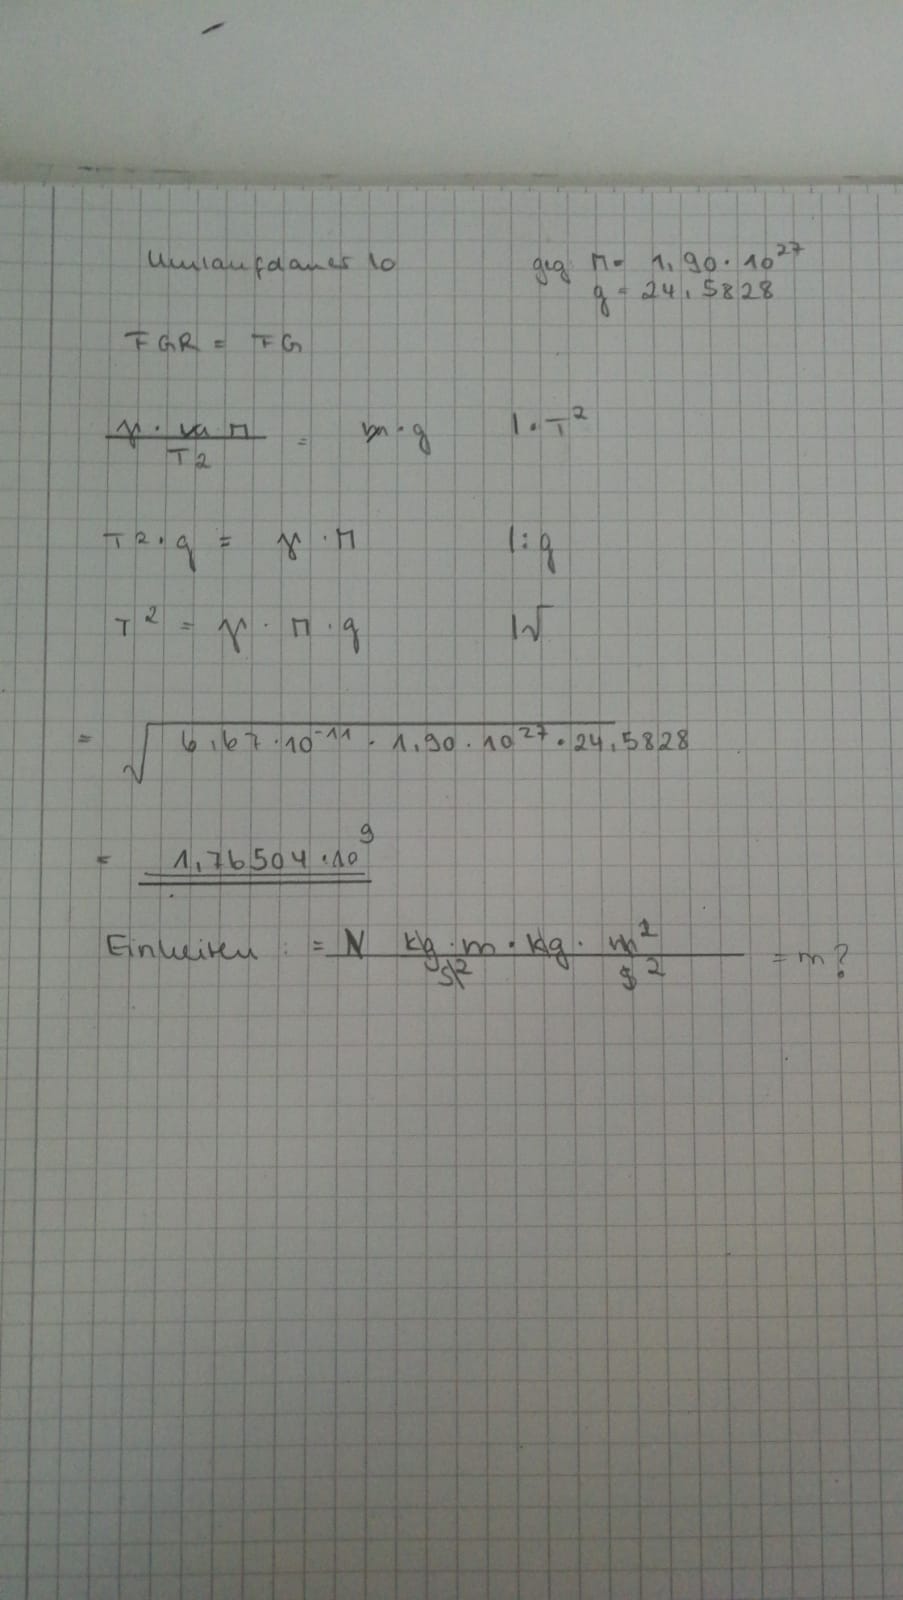 Umlaufdauer Io geg M = 1,90 · 10^27
g = 24,5828
FGR = FG
γ · m M / T2 = m · g | · T^2
T2 · g = γ · M | : g
T^2 = γ · M · g | √
= √ 6,67 · 10^-11 · 1,90 · 10^27 · 24,5828
= 1,76504 · 10^9
Einheiten : = N kg · m / s^2 · kg · m^2 / s^2 = m ?